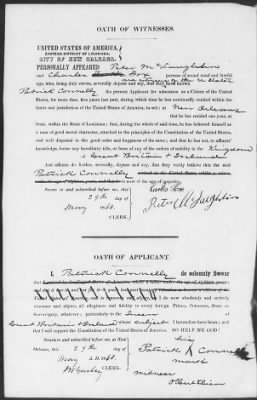 OATH OF WITNESSES.
UNITED STATES OF AMERICA,
EASTERN DISTRICT OF LOUISIANA.
CITY OF NEW ORLEANS.
PERSONALLY APPEARED Peter McLaughlin
and Charles Fox persons of sound mind and lawful
age, who, being duly sworn, severally depose and say, that they are
Patrick Connelly the present Applicant for admission as a Citizen of the United
States, for more than five years last past, during which time he has constantly resided within the
limits and jurisdiction of the United States of America, to-wit: at New Orleans
that he has resided one year, at
least, within the State of Louisiana; that, during the whole of said time, he has behaved himself as
a man of good moral character, attached to the principles of the Constitution of the United States,
and well disposed to the good order and happiness of the same; and that he has not, to affiants'
knowledge, borne any hereditary title, or been of any of the orders of nobility in the Kingdom
of Great Britain & Ireland
And affiants do further, severally, depose and say, that they verily believe that the said
Patrick Connelly
Sworn to and subscribed before me, this
29th day of
May 1860
CLERK.
Charles Fox
Peter McLaughlin
OATH OF APPLICANT.
I, Patrick Connelly do solemnly Swear
that I do now absolutely and entirely
renounce and abjure, all allegiance and fidelity to every foreign Prince, Potentate, State or
Sovereignty, whatever; particularly to the Queen of
Great Britain & Ireland whose subject I heretofore have been; and
that I will support the Constitution of the United States. SO HELP ME GOD!
Sworn to and subscribed before me, at New
Orleans, this 29th day of
May A.D. 1860.
CLERK.
his
Patrick X Connelly
mark
witness